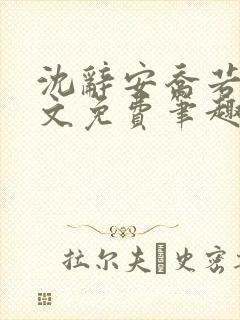 沈辞安乔若
文免费笔趣
拉尔夫·史密